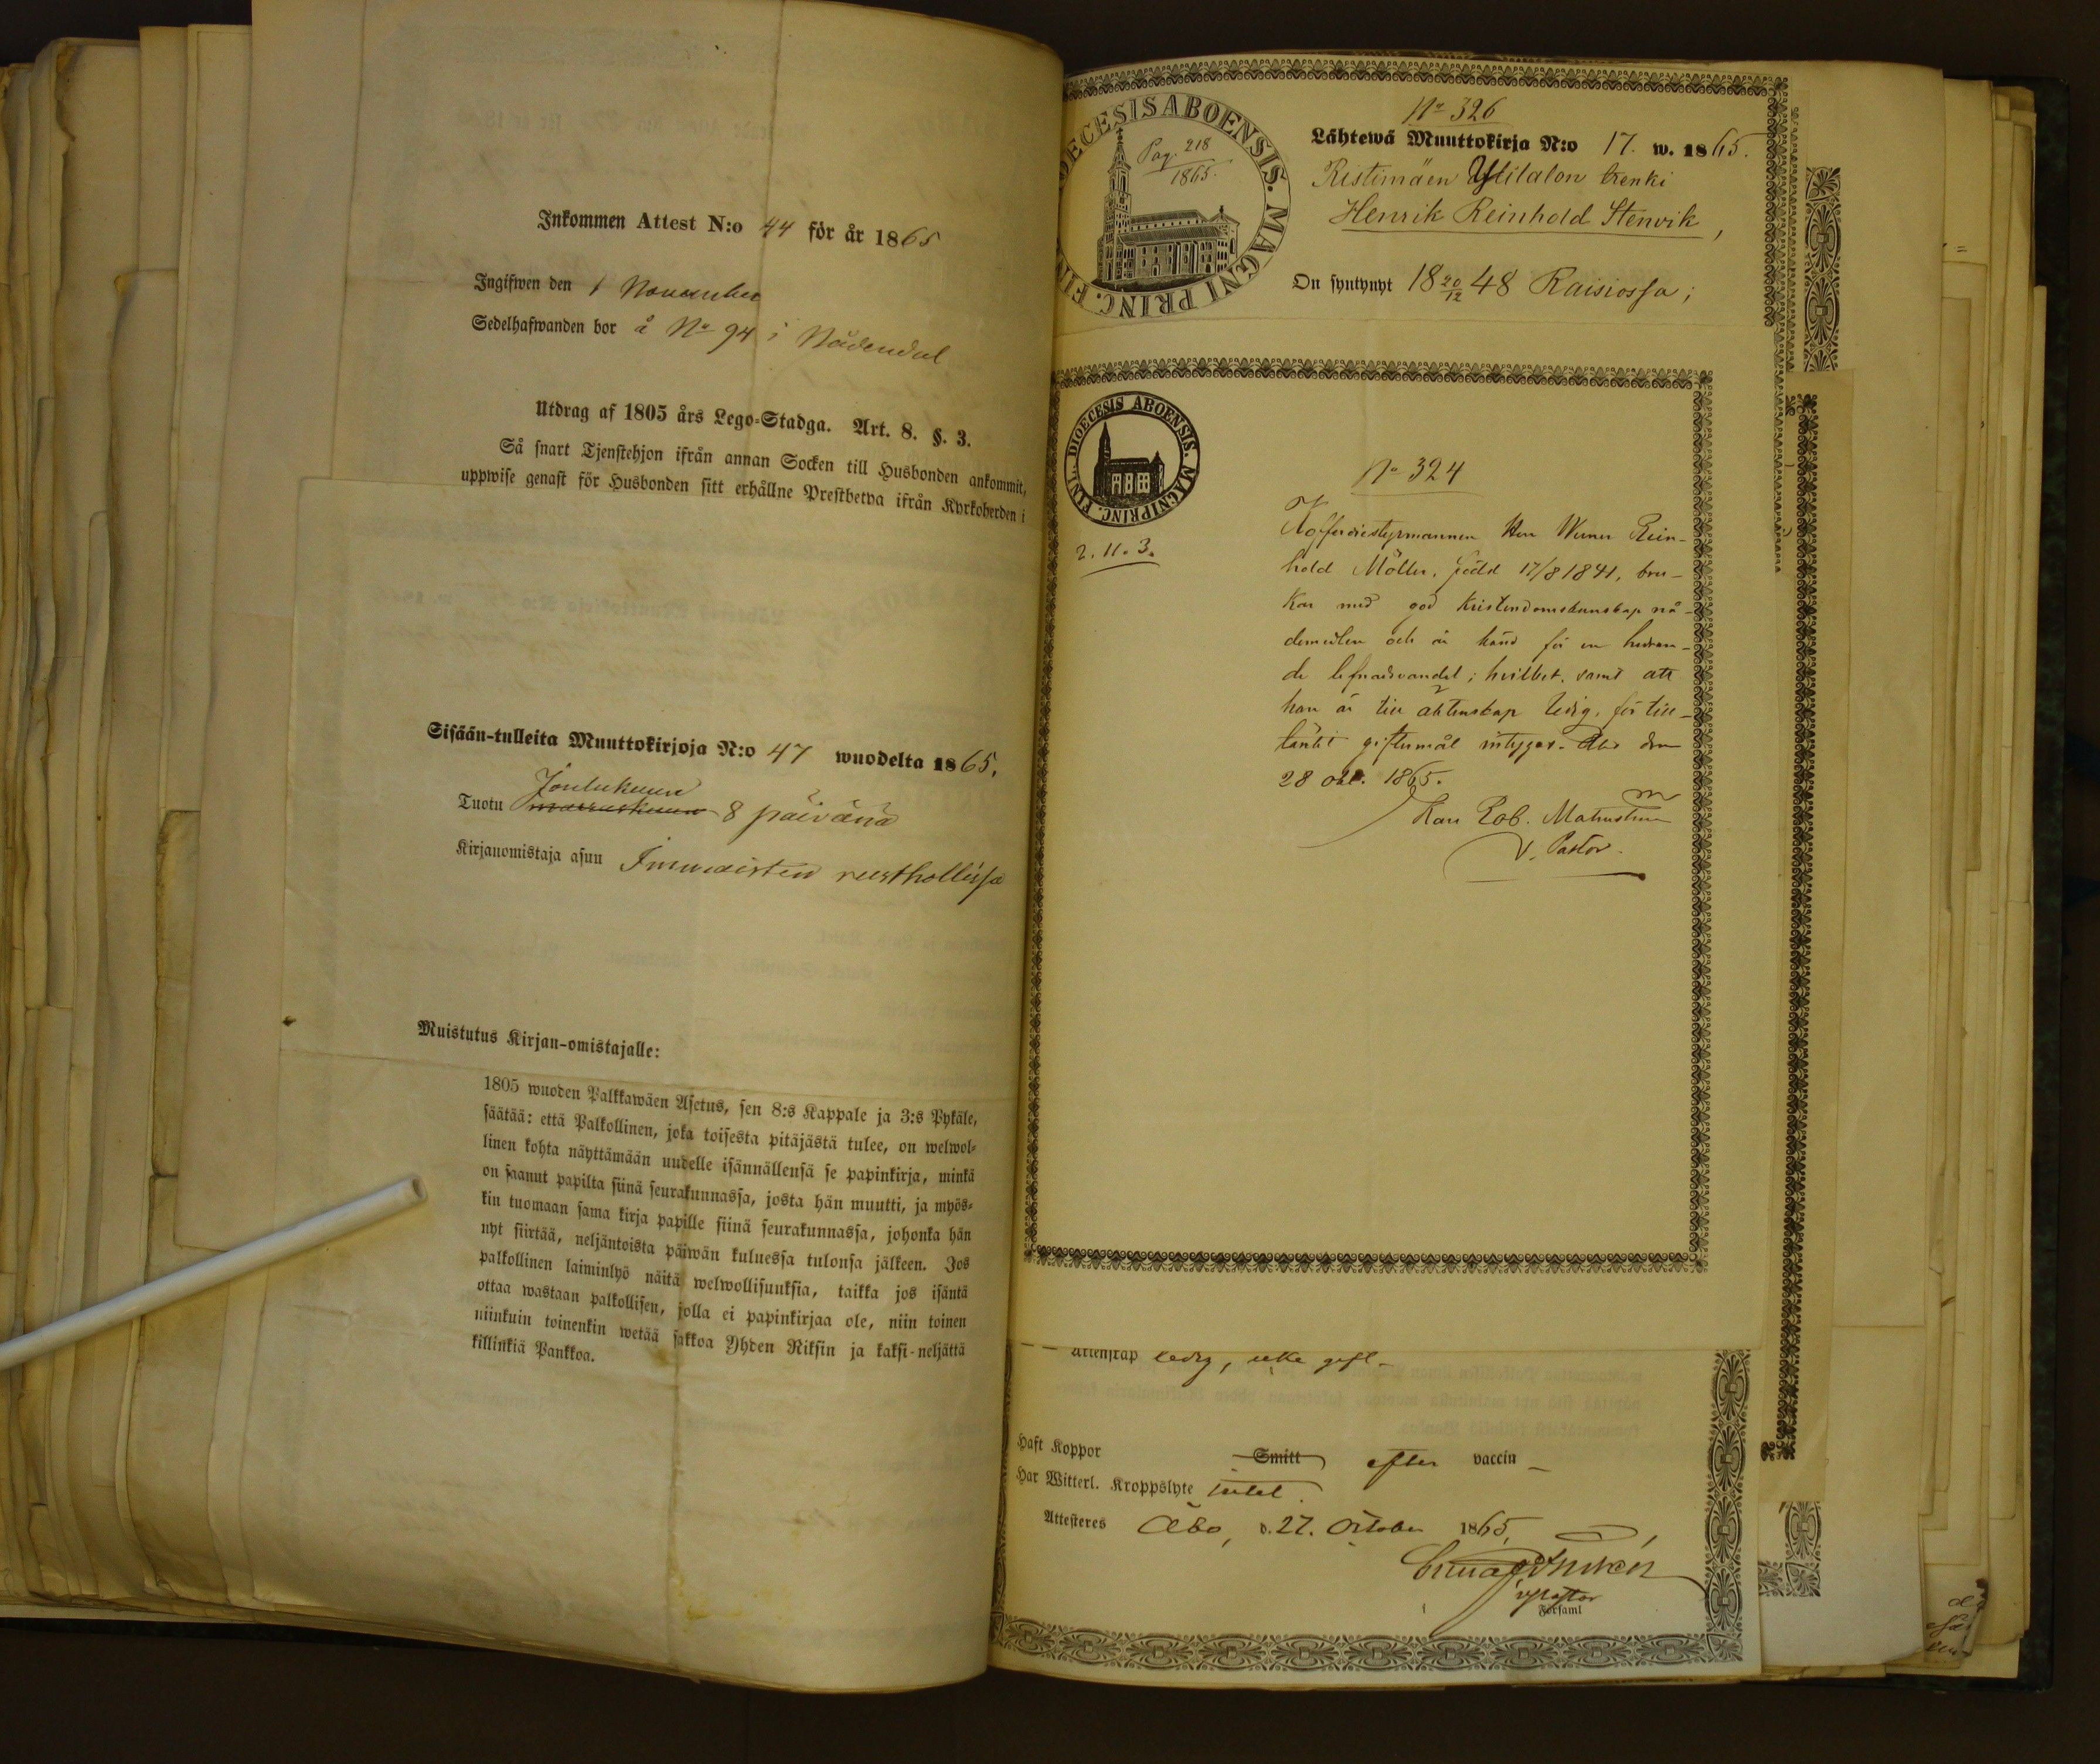 Inkommen Attest N:o 44 för år 1865
Ingifwen den 1 November
Sedelhafwanden bor å No 94 i Nådendal
Utdrag af 1805 års Lego-Stadga. Art. 8. §. 3.
Så snart Tjenstehjon ifrån annan Socken till Husbonden ankommit,
uppwise genast för Husbonden sitt erhållne Prestbetyg ifrån Kyrkoherden i
Sisään-tulleita Muuttokirjoja N:o 47 wuodelta 1865.
Joulukuun
Tuotu marraskuun 8 päivänä
Kirjanomistaja asuu Immaisten rusthollissa
Muistutus Kirjan-omistajalle:
1805 wuoden Palkkawäen Asetus, sen 8:s Kappale ja 3:s Pykäle,
säätää: että Palkollinen, joka toisesta pitäjästä tulee, on welwol-
linen kohta näyttämään uudelle isännällensä se papinkirja, minkä
on saanut papilta siinä seurakunnassa, josta hän muutti, ja myös-
kin tuomaan sama kirja papille siinä seurakunnassa, johonka hän
nyt siirtää, neljäntoista päiwän kuluessa tulonsa jälkeen. Jos
palkollinen laiminlyö näitä welwollisuuksia, taikka jos isäntä
ottaa wastaan palkollisen, jolla ei papinkirjaa ole, niin toinen
niinkuin toinenkin wetää sakkoa Yhden Riksin ja kaksi-neljättä
killinkiä Pankkoa.
DIOECESIS ABOENSIS. MAGNI PRINC. FINL.
Pag. 218
1865.
No 326
Lähtewä Muuttokirja N:o 17. w. 1865.
Ristimäen Ylitalon trenki
Henrik Reinhold Stenvik,
On syntynyt 18 20/12 48 Raisiossa;
FINL. DIOECESIS ABOENSIS. MAGNI PRINC.
2. 11. 3.
No 324
Kofferdistyrmannen Herr Werner Rein-
hold Möller, född 17/8 1841, bru-
kar med god Kristendomskunskap nå-
demedlen och är känd för en hedran-
de lefnadsvandel; hvilket, samt att
han är till äktenskap ledig, för till-
tänkt giftermål intygar. Åbo den
28 okt. 1865.
Karl Rob. Malmström
V. Pastor.
Äktenskap ledig, icke gift
Haft Koppor Smitt efter vaccin
Har Witterl. Kroppslyte intet.
Attesteres Åbo, d. 27. October 1865,
v Pastor
Församl